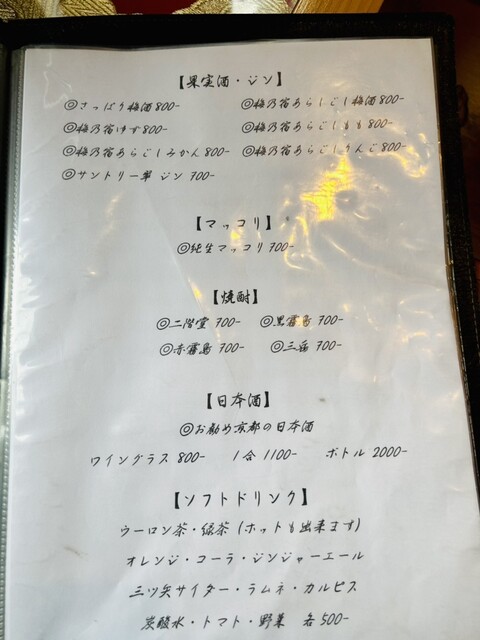 【果実酒・ジン】
◎さっぱり梅酒 800- ◎梅乃宿あらごし梅酒 800-
◎梅乃宿ゆず 800- ◎梅乃宿あらごしもも 800-
◎梅乃宿あらごしみかん 800- ◎梅乃宿あらごしりんご 800-
◎サントリー翠 ジン 700-
【マッコリ】
◎純生マッコリ 700-
【焼酎】
◎二階堂 700- ◎黒霧島 700-
◎赤霧島 700- ◎三岳 700-
【日本酒】
◎お勧め京都の日本酒
ワイングラス 800- 1合 1100- ボトル 2000-
【ソフトドリンク】
ウーロン茶・緑茶 (ホットも出来ます)
オレンジ・コーラ・ジンジャーエール
三ツ矢サイダー・ラムネ・カルピス
炭酸水・トマト・野菜 各500-